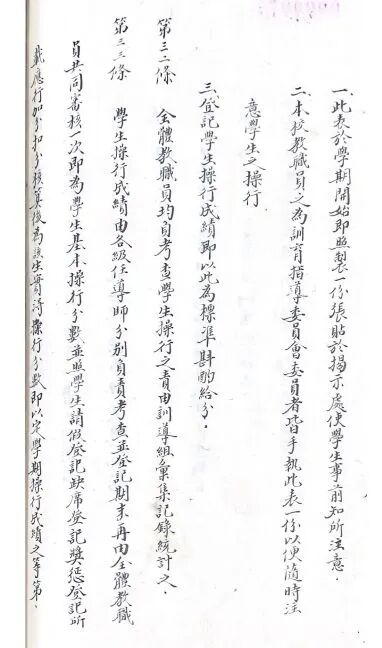 一、此表於學期開始即照製一份張貼於揭示處使學生事前知所注意．
二、本校教職員之為訓育指導委員會委員者皆手執此表一份以便隨時注
意學生之操行
三、登記學生操行成績即以此為標準斟酌給分．
第三二條　全體教職員均負考查學生操行之責由訓導組彙集記錄統計之．
第三三條　學生操行成績由各級任導師分別負責考查並登記期末再由全體教職
員共同審核一次即為學生基本操行分數並照學生請假登記缺席登記獎懲登記所
載應行加分扣分核算後為該生實得操行分數即以定學期操行成績之等第．